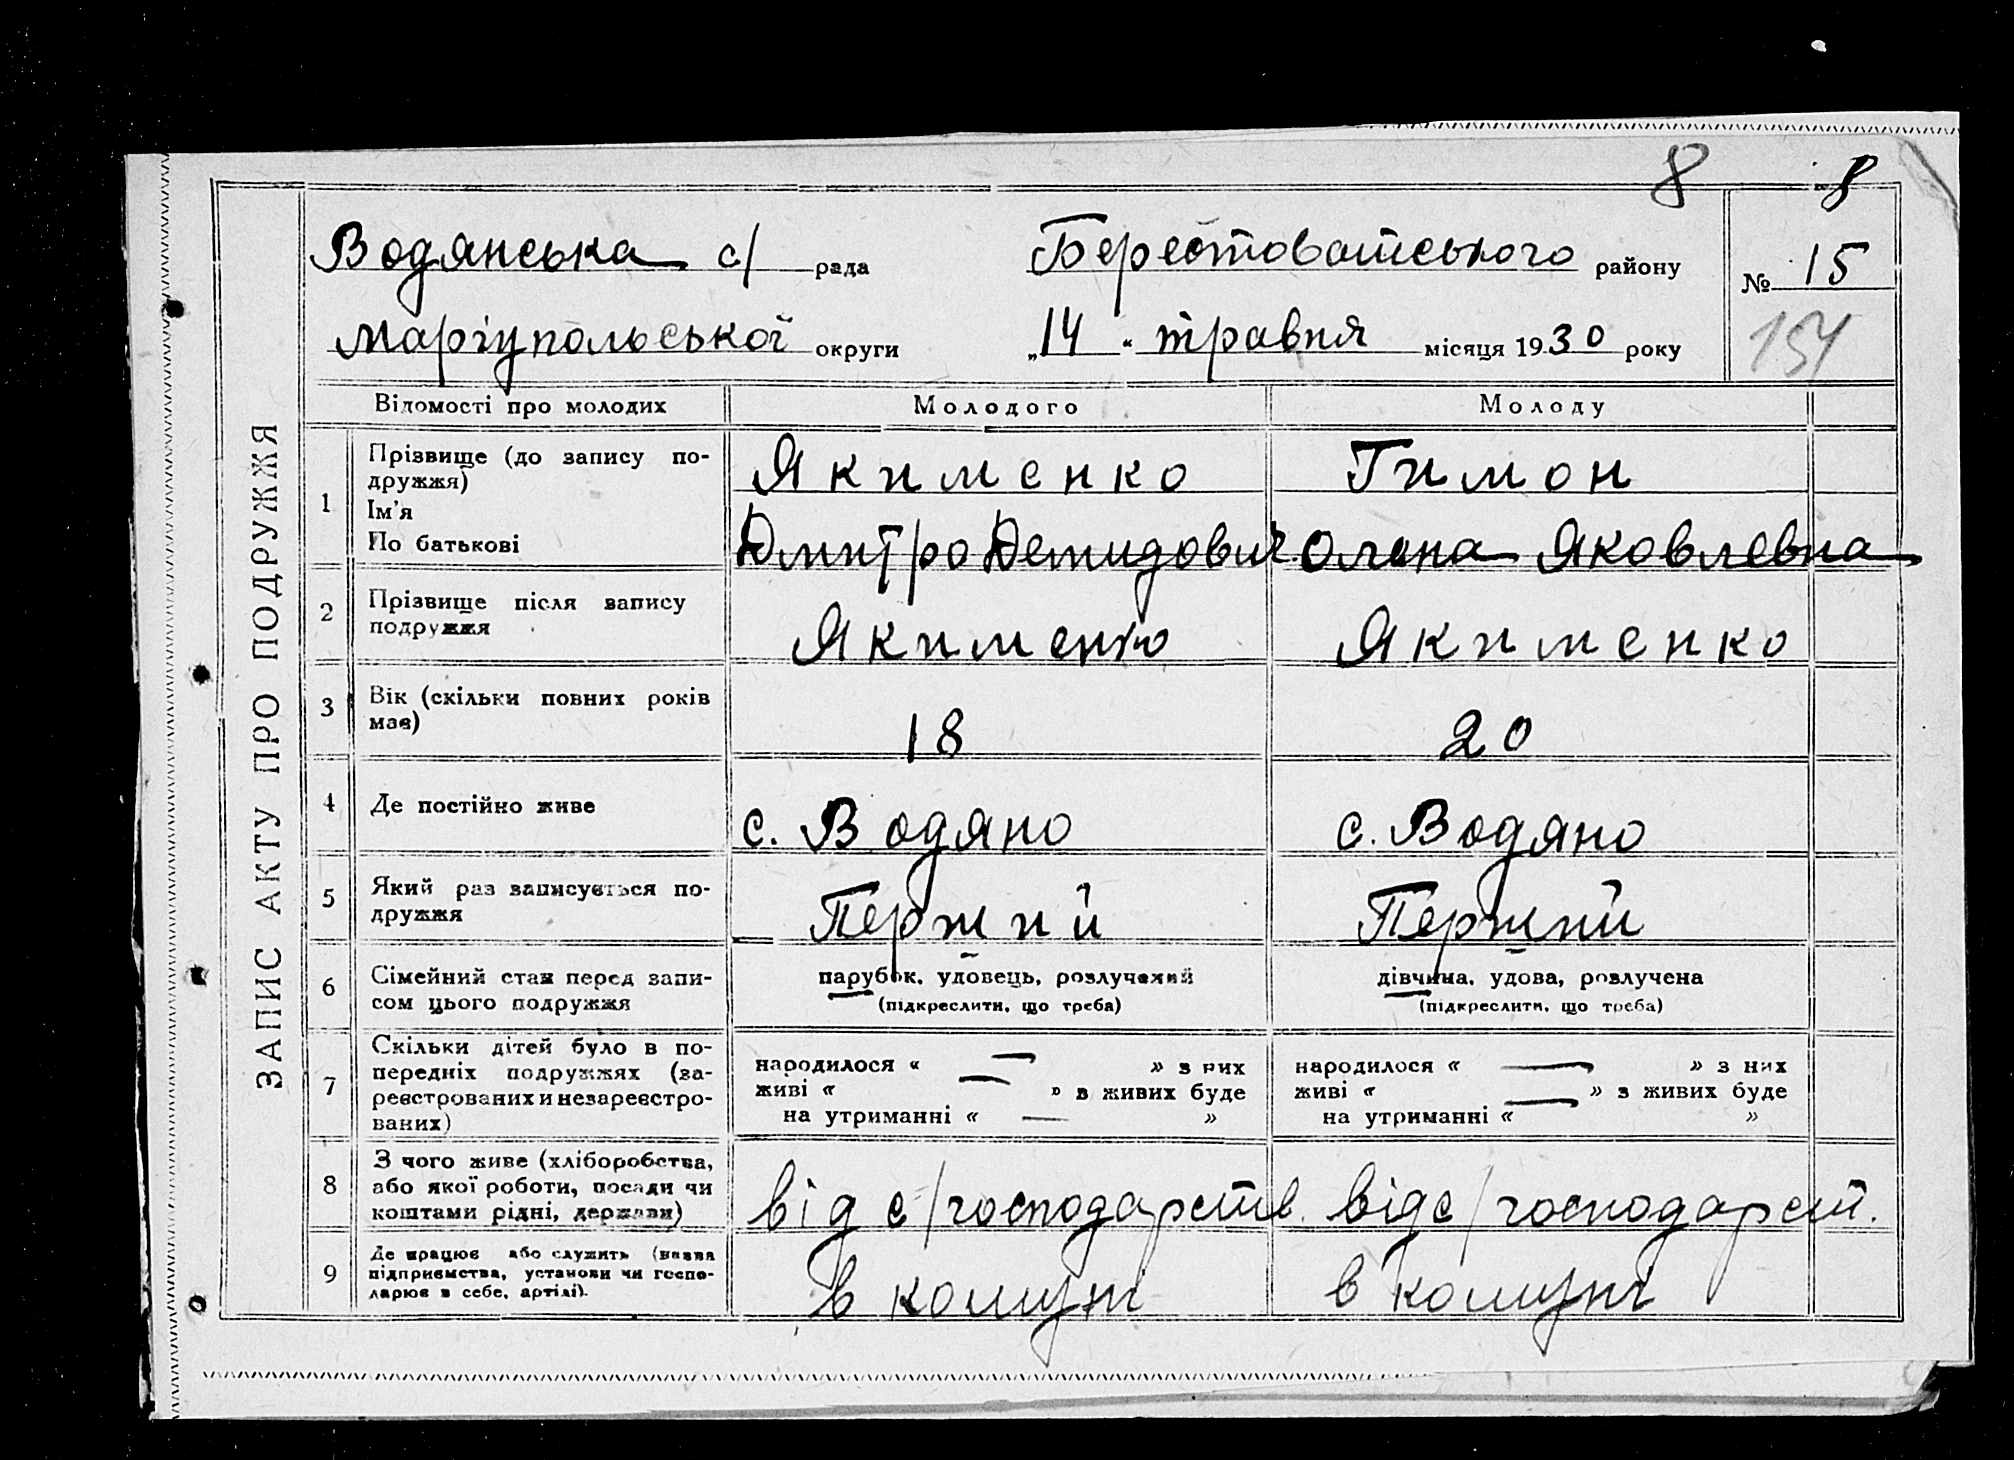 8 8
Водянська с/ рада Берестоватського району № 15
маріупольської округи „14“ травня місяця 1930 року 154
ЗАПИС АКТУ ПРО ПОДРУЖЖЯ
Відомості про молодих Молодого Молоду
1 Прізвище (до запису по-
дружжя) Якименко Гимон
Ім'я
По батькові Дмитро Демидович Олена Яковлевна
2 Прізвище після запису
подружжя Якименко Якименко
3 Вік (скільки повних років
має) 18 20
4 Де постійно живе с. Водяно с. Водяно
5 Який раз записується по-
дружжя Перший Перший
6 Сімейний стан перед запи-
сом цього подружжя
парубок, удовець, розлучений дівчина, удова, розлучена
(підкреслити, що треба) (підкреслити, що треба)
7 Скільки дітей було в по-
передніх подружжях (за-
реєстрованих и незареєстро-
ваних)
народилося « — » з них народилося « — » з них
живі « — » в живих буде живі « — » з живих буде
на утриманні « — » на утриманні « »
8 З чого живе (хліборобства,
або якої роботи, посади чи
коштами рідні, держави) від с/господарств. від с/господарст.
9 Де працює або служить (назва
підприємства, установи чи госпо-
дарює в себе, артілі). в комуні в комуні